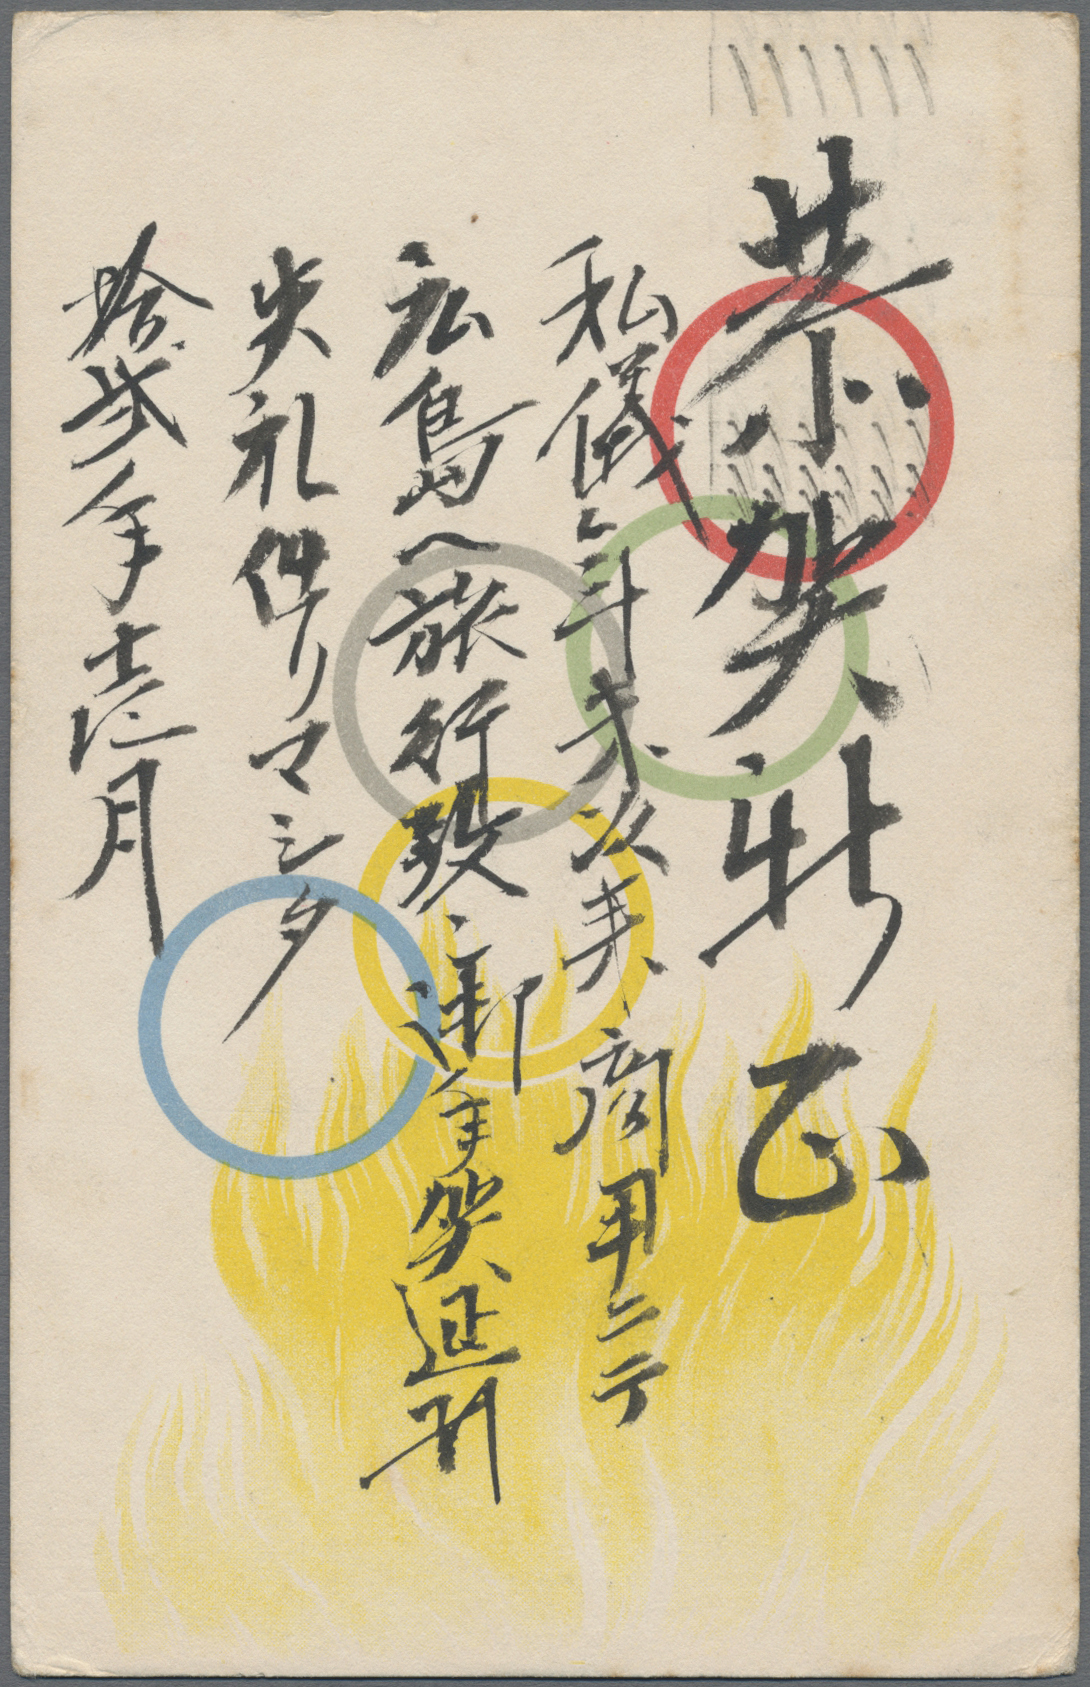 恭賀新正
私儀 商用ニテ
広島へ旅行致シ御年賀延引
失礼仕リマシタ
拾弐年壱月